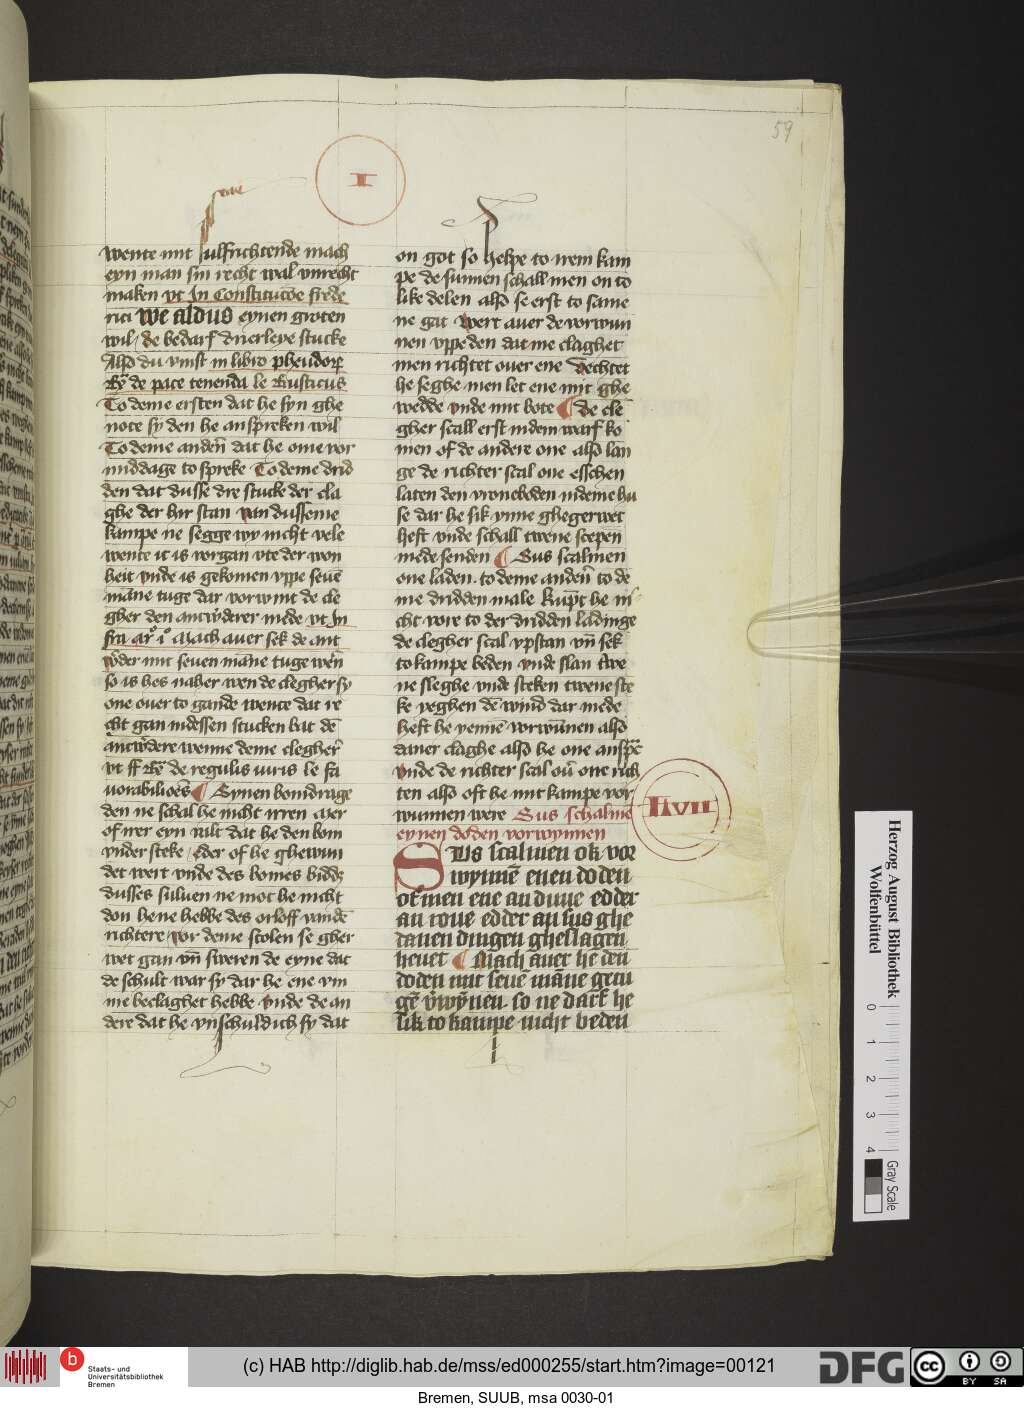 59
I
wente mit sulfrichtende mach
eyn man sin recht wal vnrecht
maken vt In Constitucōe frede
rici We aldus eynen groten
wil / de bedarf drierleye stucke
Also du vinst in libro pheudorꝝ
Rꝰ de pace tenenda le Rusticus
To deme ersten dat he syn ghe
note sy den he anspreken wil
To deme andern̄ dat he ome vor
middage to spreke To deme drid
den dat dusse dre stucke der cla
ghe der hir stan van dusseme
kampe ne segge wy nicht vele
wente it is vorgan vte der won
heit vnde is gekomen vppe seuē
māne tuge dar vorwint de cle
gher den antwᷣderer mede vt In
fra arᵒ iᵒ Mach auer sek de ant
wᷣder mit seuen māne tuge wern̄
so is hes naher wen de clegher sy
one ouer to gande wente dat re
cht gan indessen stucken bat dē
antwᷣdere wenne deme clegher̄
vt ff Rꝰ de regulis iuris le fa
uorabilioēs ¶ Eynen bomdrage
den ne schal he nicht irren auer
of irer eyn valt dat he den bom
vnder steke / Eder of he ghewun
det wert vnde des bomes biddꝫ
dusses suluen ne mot he nicht
don he ne hebbe des orloff vandē
richtere / vor deme scolen se gher
wet gan vn̄ sweren de eyne dat
de schult war sy dar he ene vm
me beclaghet hebbe vnde de an
dere dat he vnschuldich sy dat
on got so helpe to irem kam
pe de sunnen schall men on to
like delen also se erst to same
ne gat Wert auer de vorwun
nen vppe den dat me claghet
men richtet ouer ene Vechtet
he seghe men let ene mit ghe
wedde vnde mit bote ¶ de cle
gher scall erst indem warf ko
men of de andere one also lan
ge de richter scal one esschen
laten den vroneboden indeme hu
se dar he sik ynne ghegerwet
heft vnde schall twene scepen
mede senden ¶ Sus scalmen
one laden. to deme andern̄ to de
me dridden male Kūpt he ni
cht vore to der dridden ladinge
de clegher scal vpstan vn̄ sek
to kampe beden vnde slan twe
ne sleghe vnde steken twene ste
ke yeghen dē wind dar mede
heft he yennē vorwūnen also
daner claghe also he one ansprē
vnde de richter scal ouͤ one rich
ten also oft he mit kampe vor
wunnen were Sus schalme
eynen doden vorwynnen
IIVII
SUs scalmen ok vor
wynnē enen doden
of men ene an duue edder
an roue edder an sus ghe
danen dingen gheslagen
heuet ¶ Mach auer he den
doden mit seuē māne getu
gē vᷣwynen. so ne darf he
sik to kampe nicht beden
Herzog August Bibliothek
Wolfenbüttel
0 1 2 3 4
Gray Scale
b
Staats- und
Universitätsbibliothek
Bremen
(c) HAB http://diglib.hab.de/mss/ed000255/start.htm?image=00121
DFG
cc BY SA
Bremen, SUUB, msa 0030-01